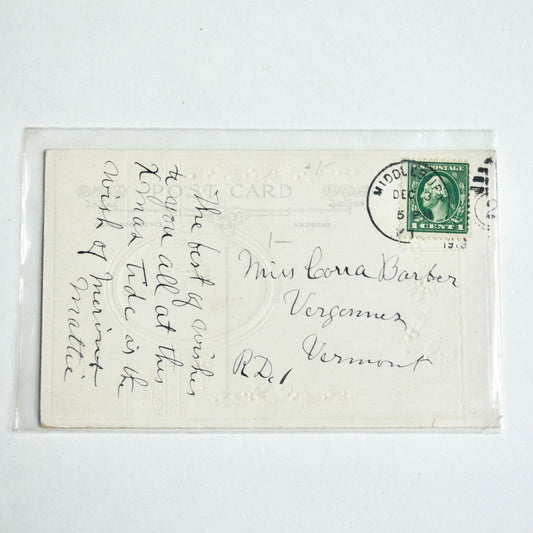 POST CARD
ADDRESS
The best of wishes
to you all at this
Xmas Tide is the
wish of
Mattie
Miss Corra Barber
Vergennes
Vermont
R.D. 1
MIDDLEBURY
DEC
5 P
U.S. POSTAGE
1 CENT 1